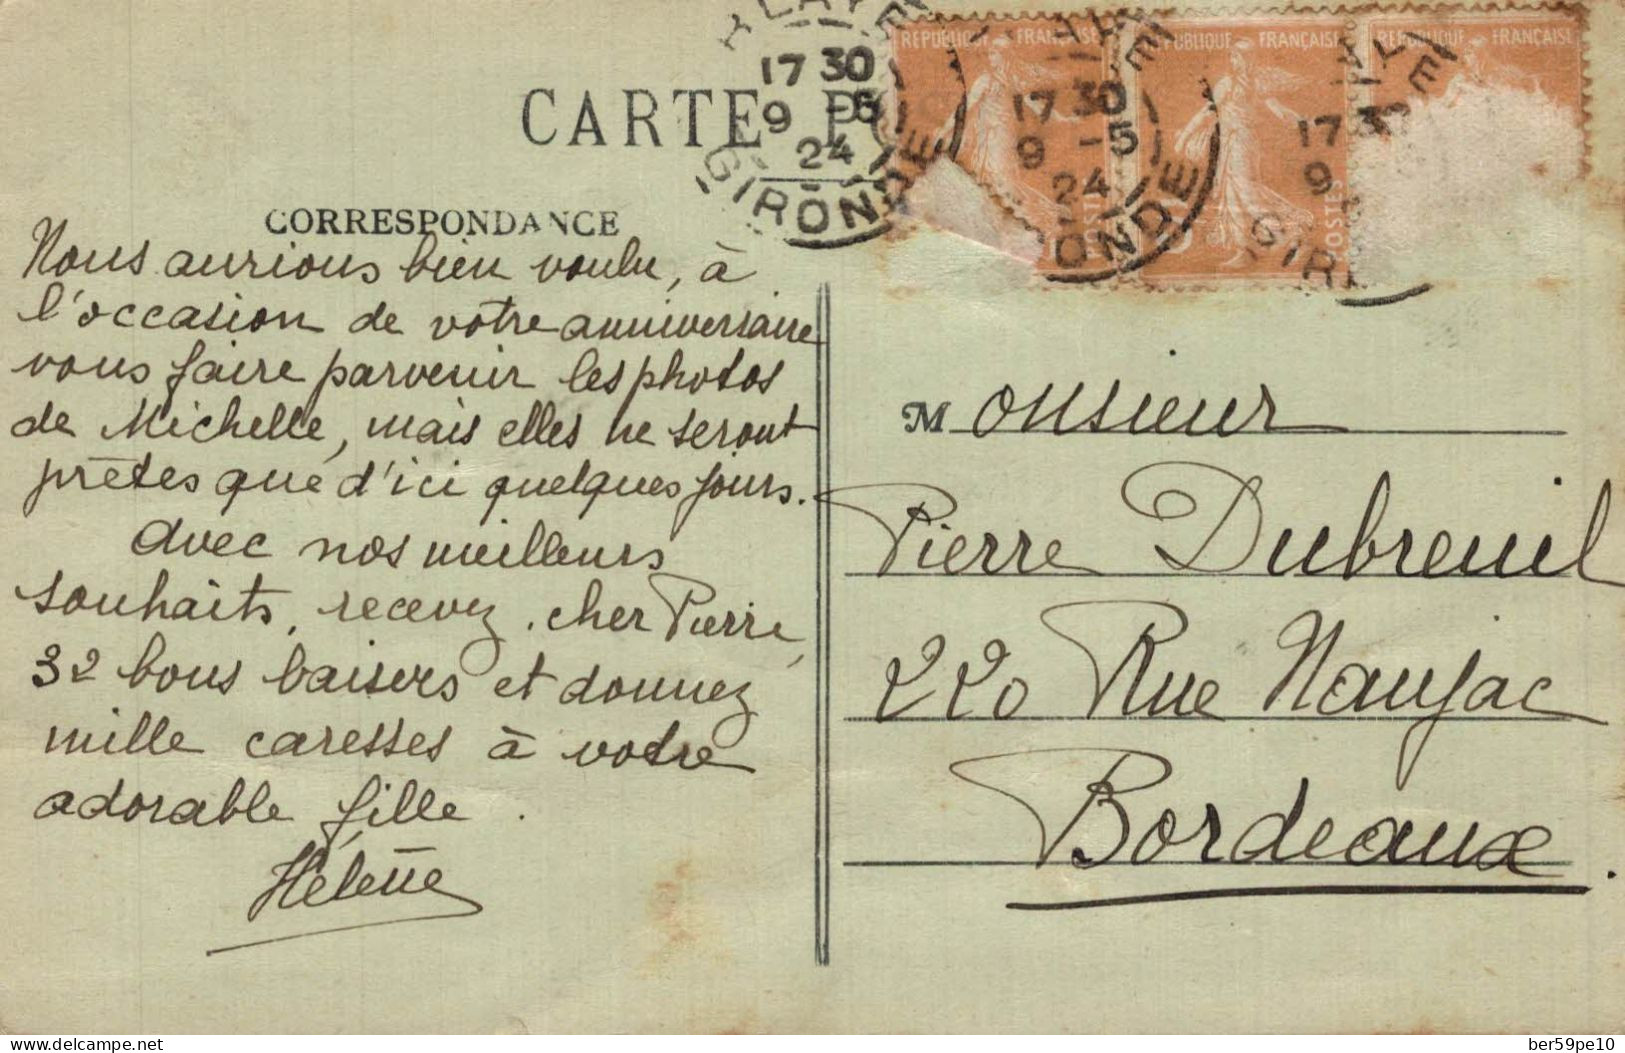 CARTE
CORRESPONDANCE
Nous aurions bien voulu, à
l'occasion de votre anniversaire
vous faire parvenir les photos
de Michelle, mais elles ne seront
prêtes que d'ici quelques jours.
Avec nos meilleurs
souhaits, recevez, cher Pierre,
32 bons baisers et donnez
mille caresses à votre
adorable fille.
Hélène
17 30
9 -5
24
GIRONDE
REPUBLIQUE FRANÇAISE
17 30
9 -5
24
ONDE
REPUBLIQUE FRANÇAISE
POSTES
REPUBLIQUE FRANÇAISE
17 3
9
GIR
Monsieur
Pierre Dubreuil
220 Rue Naujac
Bordeaux.
delcampe.net
ber59pe10